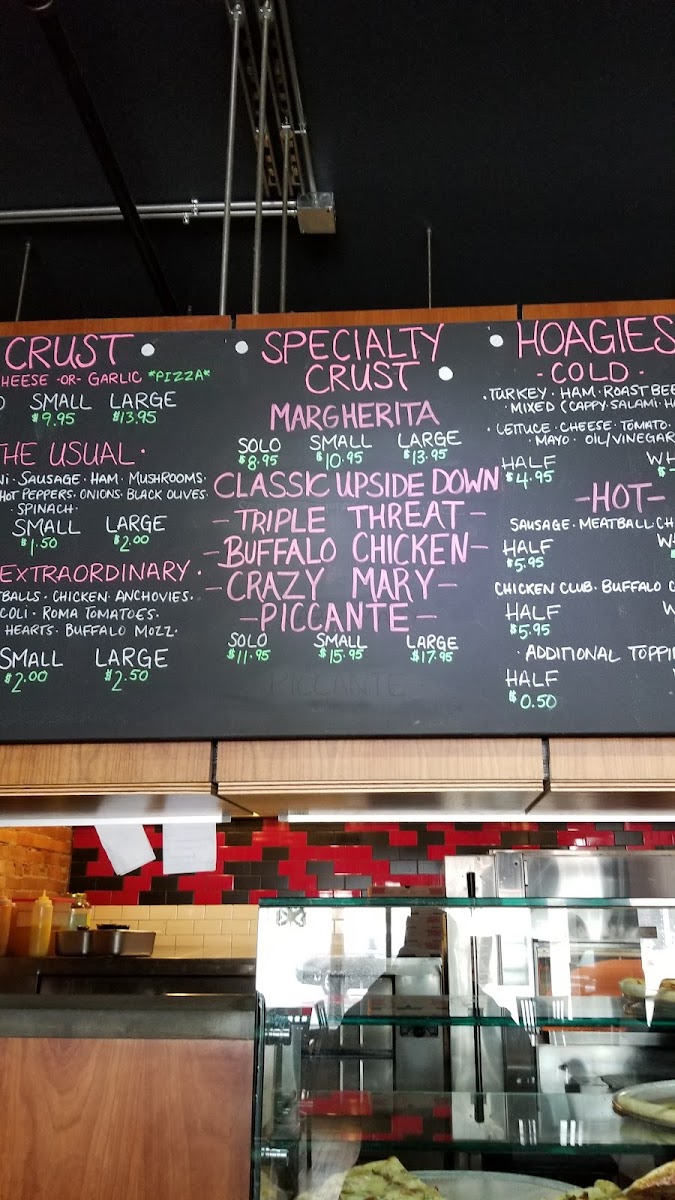 CRUST
CHEESE -OR- GARLIC *PIZZA*
SMALL LARGE
$9.95 $13.95
THE USUAL.
SAUSAGE. HAM. MUSHROOMS.
HOT PEPPERS. ONIONS. BLACK OLIVES.
SPINACH.
SMALL LARGE
$1.50 $2.00
EXTRAORDINARY.
CHICKEN. ANCHOVIES.
ROMA TOMATOES.
HEARTS. BUFFALO MOZZ.
SMALL LARGE
$2.00 $2.50
SPECIALTY
CRUST
MARGHERITA
SOLO SMALL LARGE
$8.95 $10.95 $13.95
CLASSIC UPSIDE DOWN
- TRIPLE THREAT -
- BUFFALO CHICKEN -
- CRAZY MARY -
- PICCANTE -
SOLO SMALL LARGE
$11.95 $15.95 $17.95
PICCANTE
HOAGIES
- COLD -
. TURKEY. HAM. ROAST BEE
. MIXED (CAPPY. SALAMI. H
. LETTUCE. CHEESE. TOMATO.
MAYO. OIL/VINEGAR
HALF
$4.95
-HOT-
SAUSAGE. MEATBALL. CH
HALF
$5.95
CHICKEN CLUB. BUFFALO C
HALF
$5.95
. ADDITIONAL TOPPI
HALF
$0.50